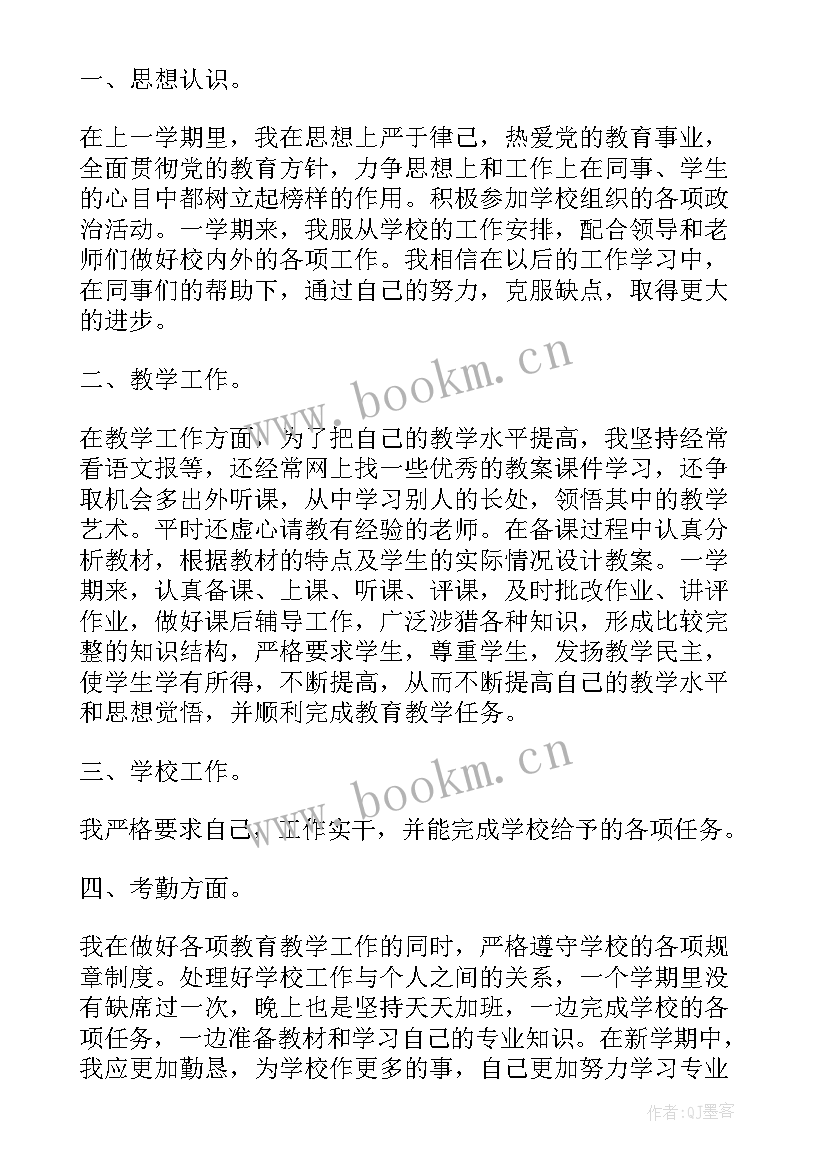 一、思想认识。
在上一学期里，我在思想上严于律己，热爱党的教育事业，
全面贯彻党的教育方针，力争思想上和工作上在同事、学生
的心目中都树立起榜样的作用。积极参加学校组织的各项政
治活动。一学期来，我服从学校的工作安排，配合领导和老
师们做好校内外的各项工作。我相信在以后的工作学习中，
在同事们的帮助下，通过自己的努力，克服缺点，取得更大
的进步。
二、教学工作。
在教学工作方面，为了把自己的教学水平提高，我坚持经常
看语文报等，还经常网上找一些优秀的教案课件学习，还争
取机会多出外听课，从中学习别人的长处，领悟其中的教学
艺术。平时还虚心请教有经验的老师。在备课过程中认真分
析教材，根据教材的特点及学生的实际情况设计教案。一学
期来，认真备课、上课、听课、评课，及时批改作业、讲评
作业，做好课后辅导工作，广泛涉猎各种知识，形成比较完
整的知识结构，严格要求学生，尊重学生，发扬教学民主，
使学生学有所得，不断提高，从而不断提高自己的教学水平
和思想觉悟，并顺利完成教育教学任务。
三、学校工作。
我严格要求自己，工作实干，并能完成学校给予的各项任务。
四、考勤方面。
我在做好各项教育教学工作的同时，严格遵守学校的各项规
章制度。处理好学校工作与个人之间的关系，一个学期里没
有缺席过一次，晚上也是坚持天天加班，一边完成学校的各
项任务，一边准备教材和学习自己的专业知识。在新学期中，
我应更加勤恳，为学校作更多的事，自己更加努力学习专业
www.bookm.cn
www.bookm.cn
作者:QJ墨客